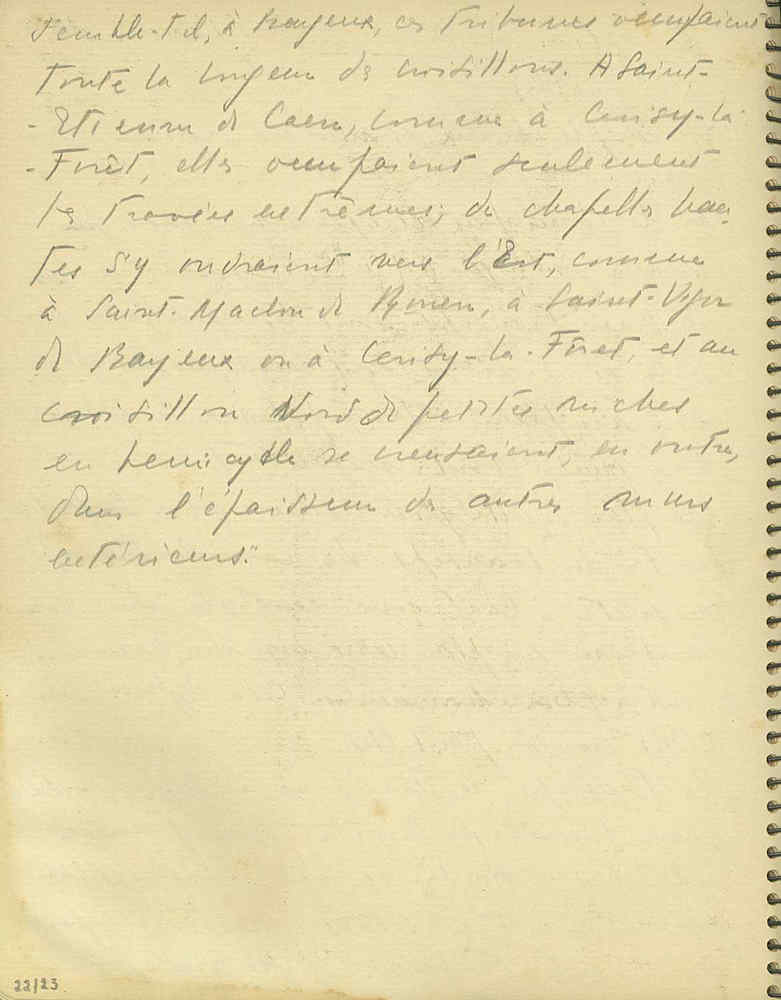 semble-t-il, à Bayeux, ces tribunes occupaient
toute la longueur des croisillons. A Saint-
-Etienne de Caen, comme à Cerisy-la-
-Forêt, elles occupaient seulement
les travées extrêmes; des chapelles hau-
tes s'y ouvraient vers l'Est, comme
à Saint-Maclou de Rouen, à Saint-Vigor
de Bayeux ou à Cerisy-la-Forêt, et au
croisillon Nord de petites niches
en hemicycle se creusaient, en outre,
dans l'épaisseur des autres murs
extérieurs."
22/23